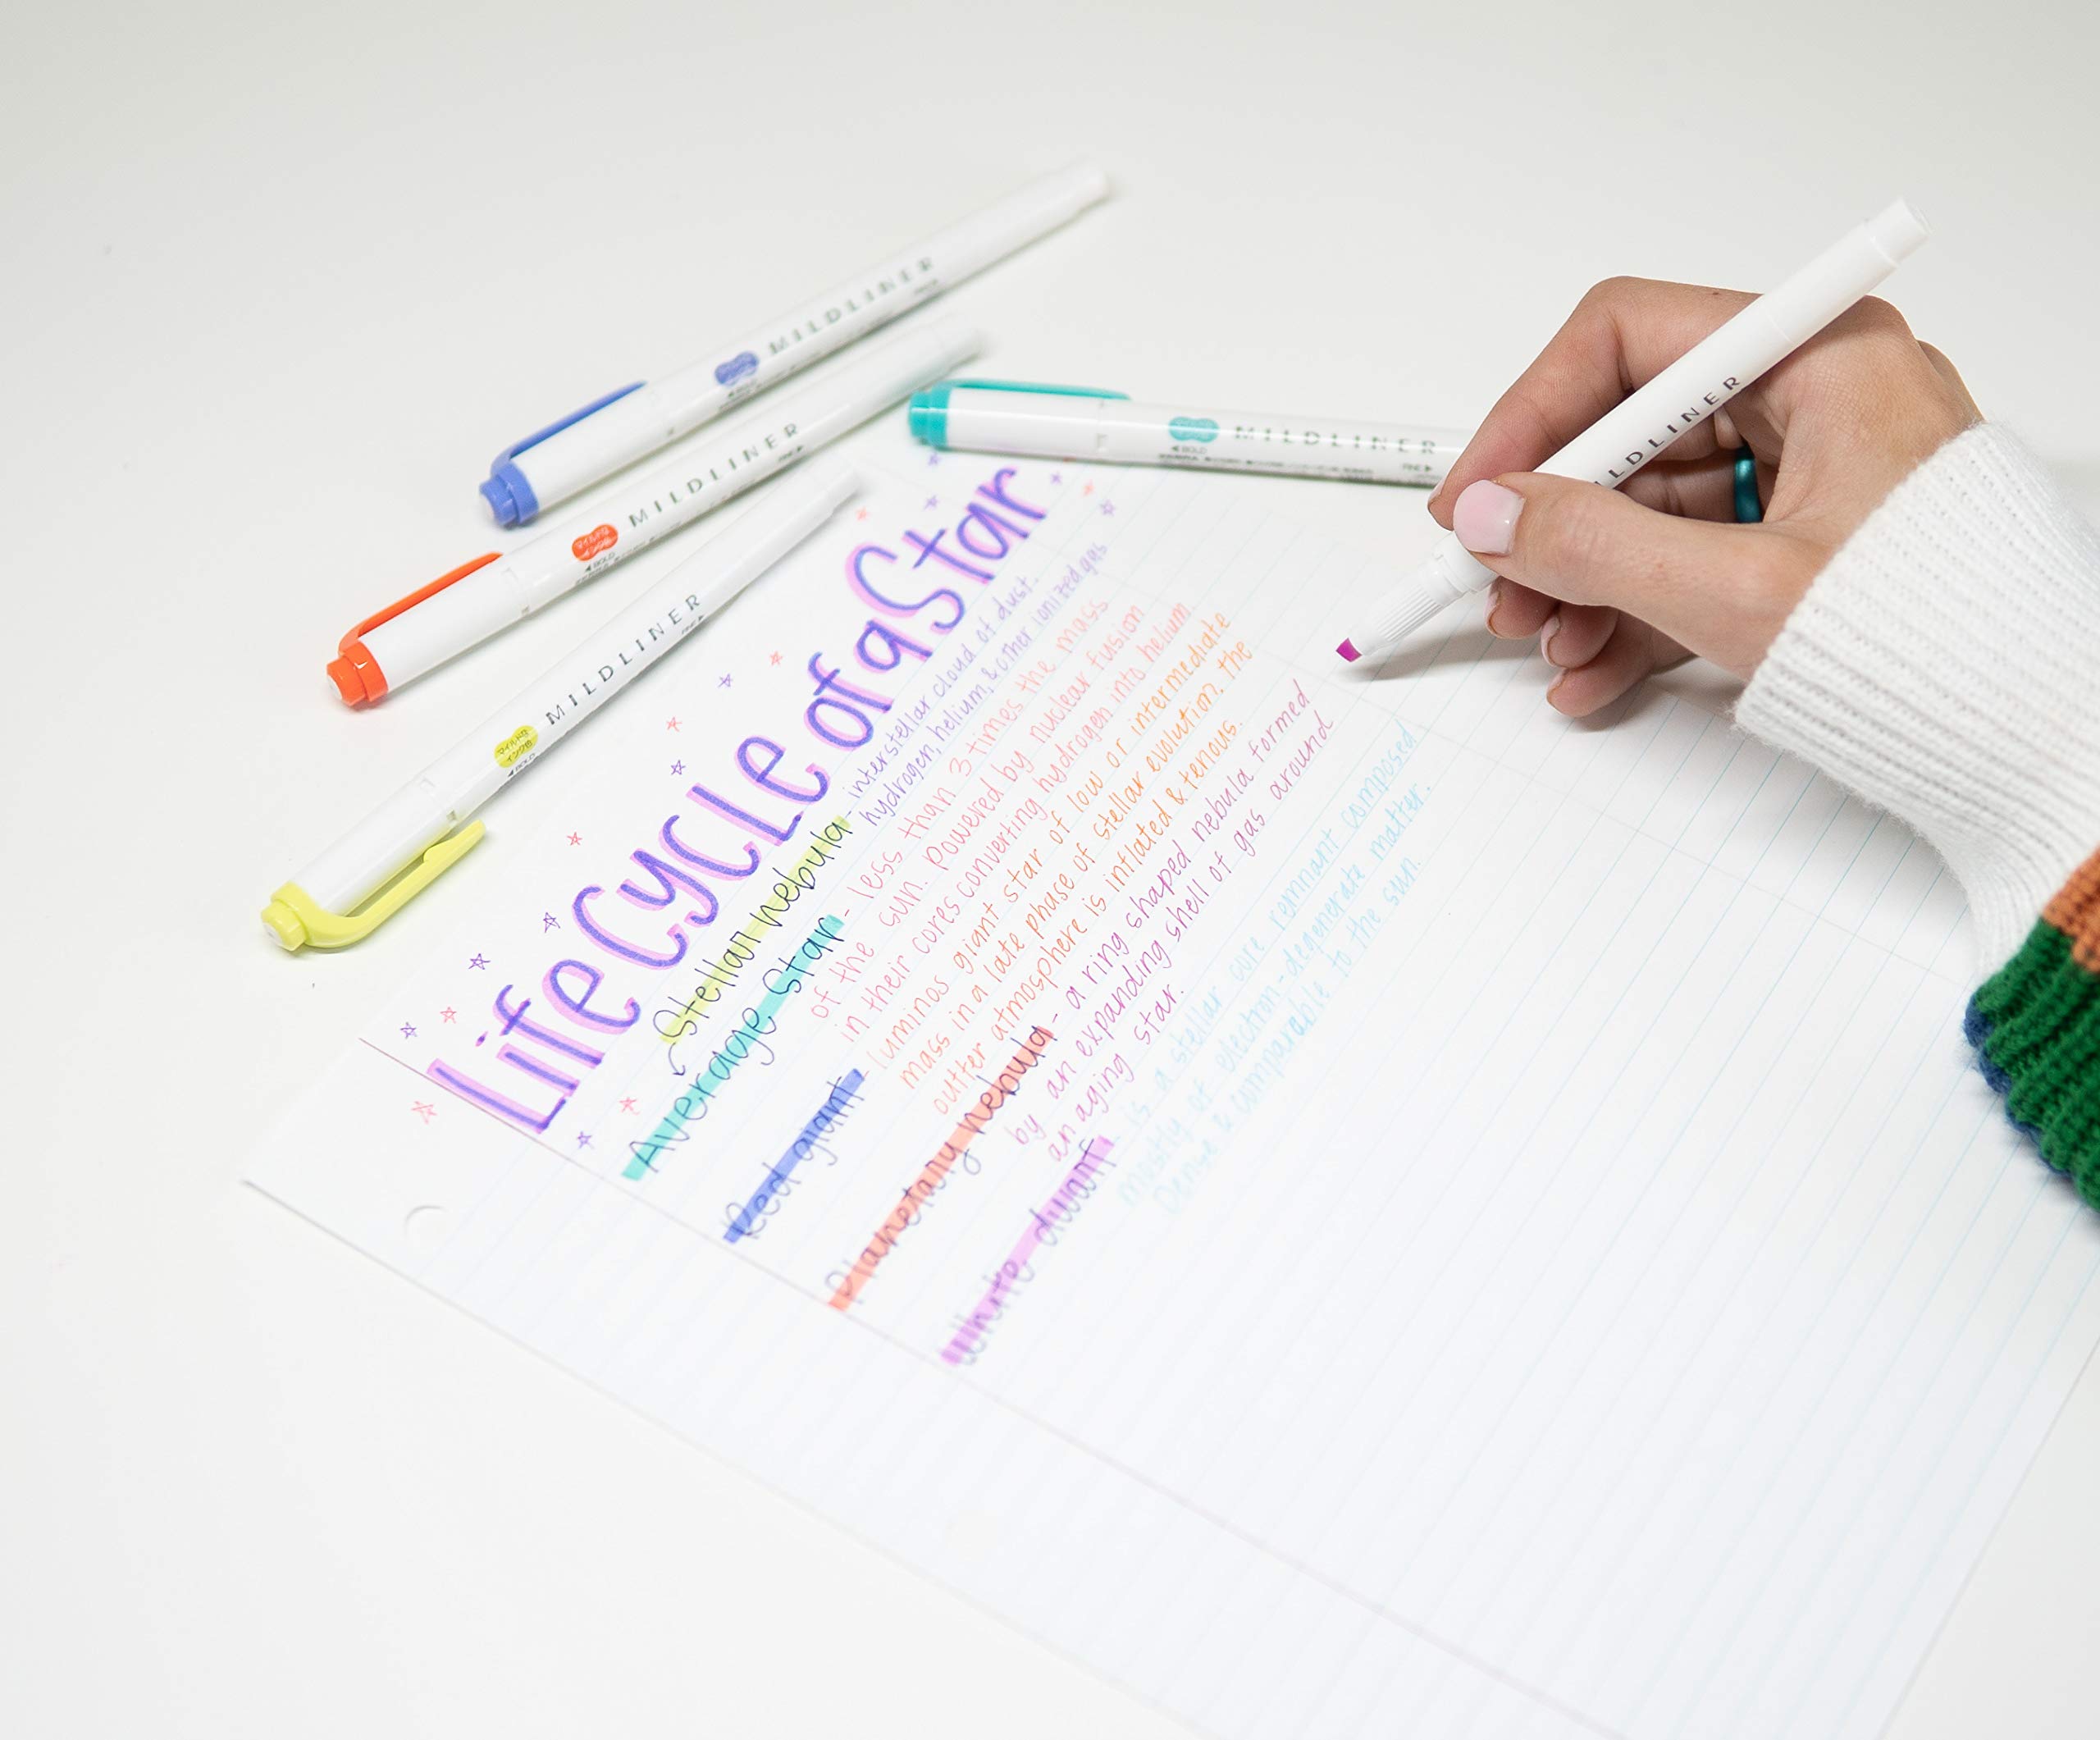 Life Cycle of a Star
Stellar nebula - interstellar cloud of dust,
hydrogen, helium, & other ionized gas
Average Star - less than 3 times the mass
of the sun. Powered by nuclear fusion
in their cores converting hydrogen into helium.
Red giant - luminos giant star of low or intermediate
mass in a late phase of stellar evolution. the
outter atmosphere is inflated & tenous.
Planetary nebula - a ring shaped nebula formed
by an expanding shell of gas around
an aging star.
White dwarf - is a stellar core remnant composed
mostly of electron-degenerate matter.
Dense & comparable to the sun.
MILDLINER
FINE
BOLD
MILDLINER
FINE
マイルドな
BOLD
MILDLINER
FINE
マイルドな
インク色
BOLD
MILDLINER
BOLD
FINE
ILDLINER